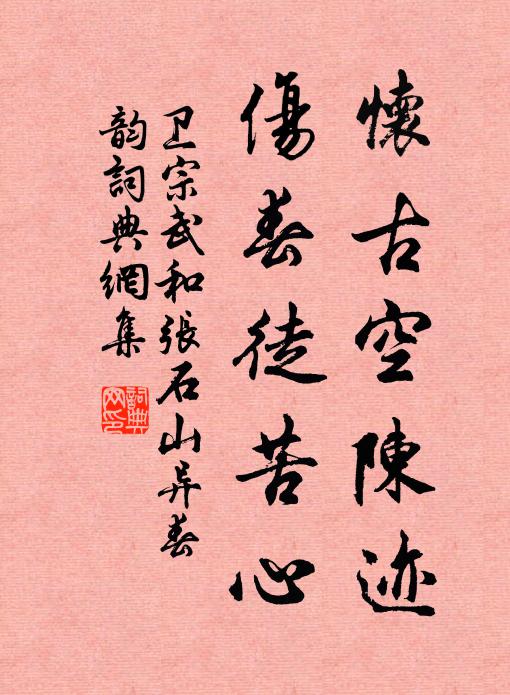 懷古空陳迹
傷春徒苦心
卫宗武和張石山异春
韵詞典網集
詞典网印